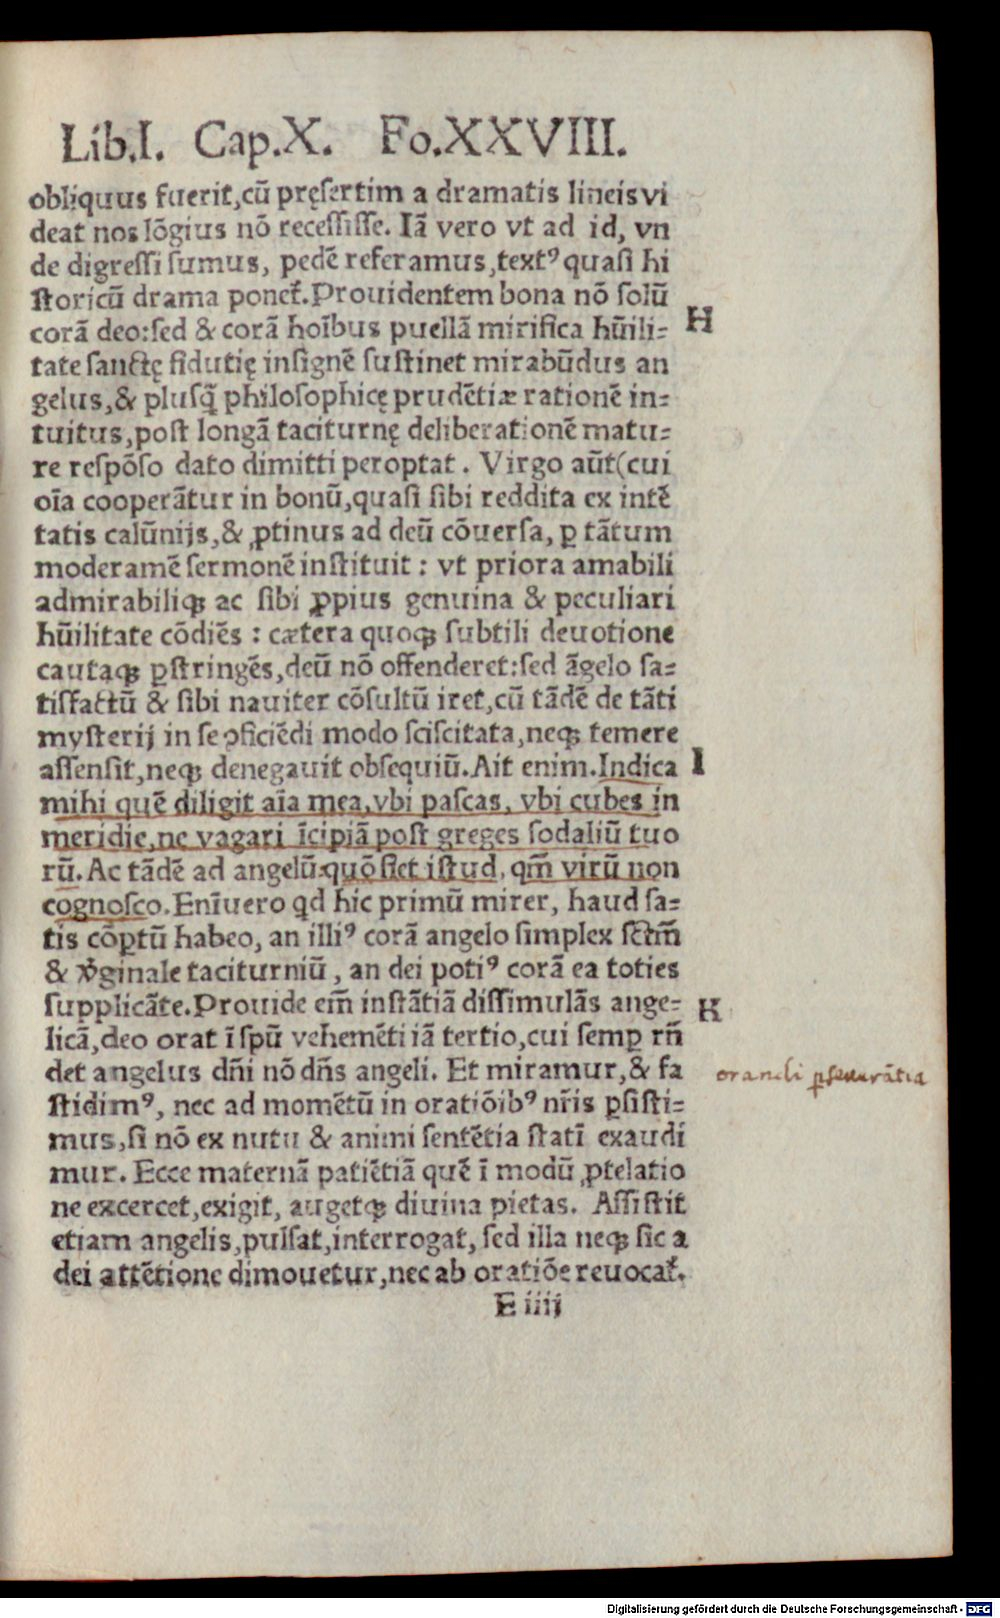 Lib.I. Cap.X. Fo.XXVIII.
obliquus fuerit,cū pręsertim a dramatis lineis vi
deat nos lōgius nō recessisse. Iā vero vt ad id, vn
de digressi sumus, pedē referamus,textꝰ quasi hi
storicū drama ponet̃.Prouidentem bona nō solū
corā deo:sed & corā hoĩbus puellā mirifica hūili-
tate sanctę fidutię insignē sustinet mirabūdus an
gelus,& plusq̃ philosophicę prudētiæ rationē in-
tuitus,post longā taciturnę deliberationē matu-
re respōso dato dimitti peroptat. Virgo aūt(cui
oīa cooperātur in bonū,quasi sibi reddita ex intē
tatis calūnijs,& ꝓtinus ad deū cōuersa, ꝑ tātum
moderamē sermonē instituit : vt priora amabili
admirabiliqꝫ ac sibi ꝓpius genuina & peculiari
hūilitate cōdiēs : cætera quoqꝫ subtili deuotione
cautaqꝫ ꝑstringēs,deū nō offenderet:sed āgelo sa-
tisfactū & sibi nauiter cōsultū iret,cū tādē de tāti
mysterij in se ꝑficiēdi modo sciscitata,neqꝫ temere
assensit,neqꝫ denegauit obsequiū.Ait enim.Indica
mihi quē diligit aīa mea,vbi pascas, vbi cubes in
meridie,ne vagari īcipiā post greges sodaliū tuo
rū.Ac tādē ad angelū:quō fiet istud, qm̄ virū non
cognosco.Enīuero qd hic primū mirer, haud sa-
tis cōꝑtū habeo, an illiꝰ corā angelo simplex sctm̄
& v̓ginale taciturniū, an dei potiꝰ corā ea toties
supplicāte.Prouide em̄ instātiā dissimulās ange-
licā,deo orat ī spū vehemēti iā tertio,cui semꝑ rn̄
det angelus dñi nō dñs angeli. Et miramur,& fa
stidimꝰ, nec ad momētū in oratiōibꝰ nr̄is ꝑsisti-
mus,si nō ex nutu & animi sentētia statī exaudi
mur. Ecce maternā patiētiā quē ī modū ꝓtelatio
ne excercet,exigit, augetqꝫ diuina pietas. Assistit
etiam angelis,pulsat,interrogat, sed illa neqꝫ sic a
dei attētione dimouetur,nec ab oratiōe reuocat̃.
E iiij
H
I
K
orandi ꝑseuerātia
Digitalisierung gefördert durch die Deutsche Forschungsgemeinschaft - DFG